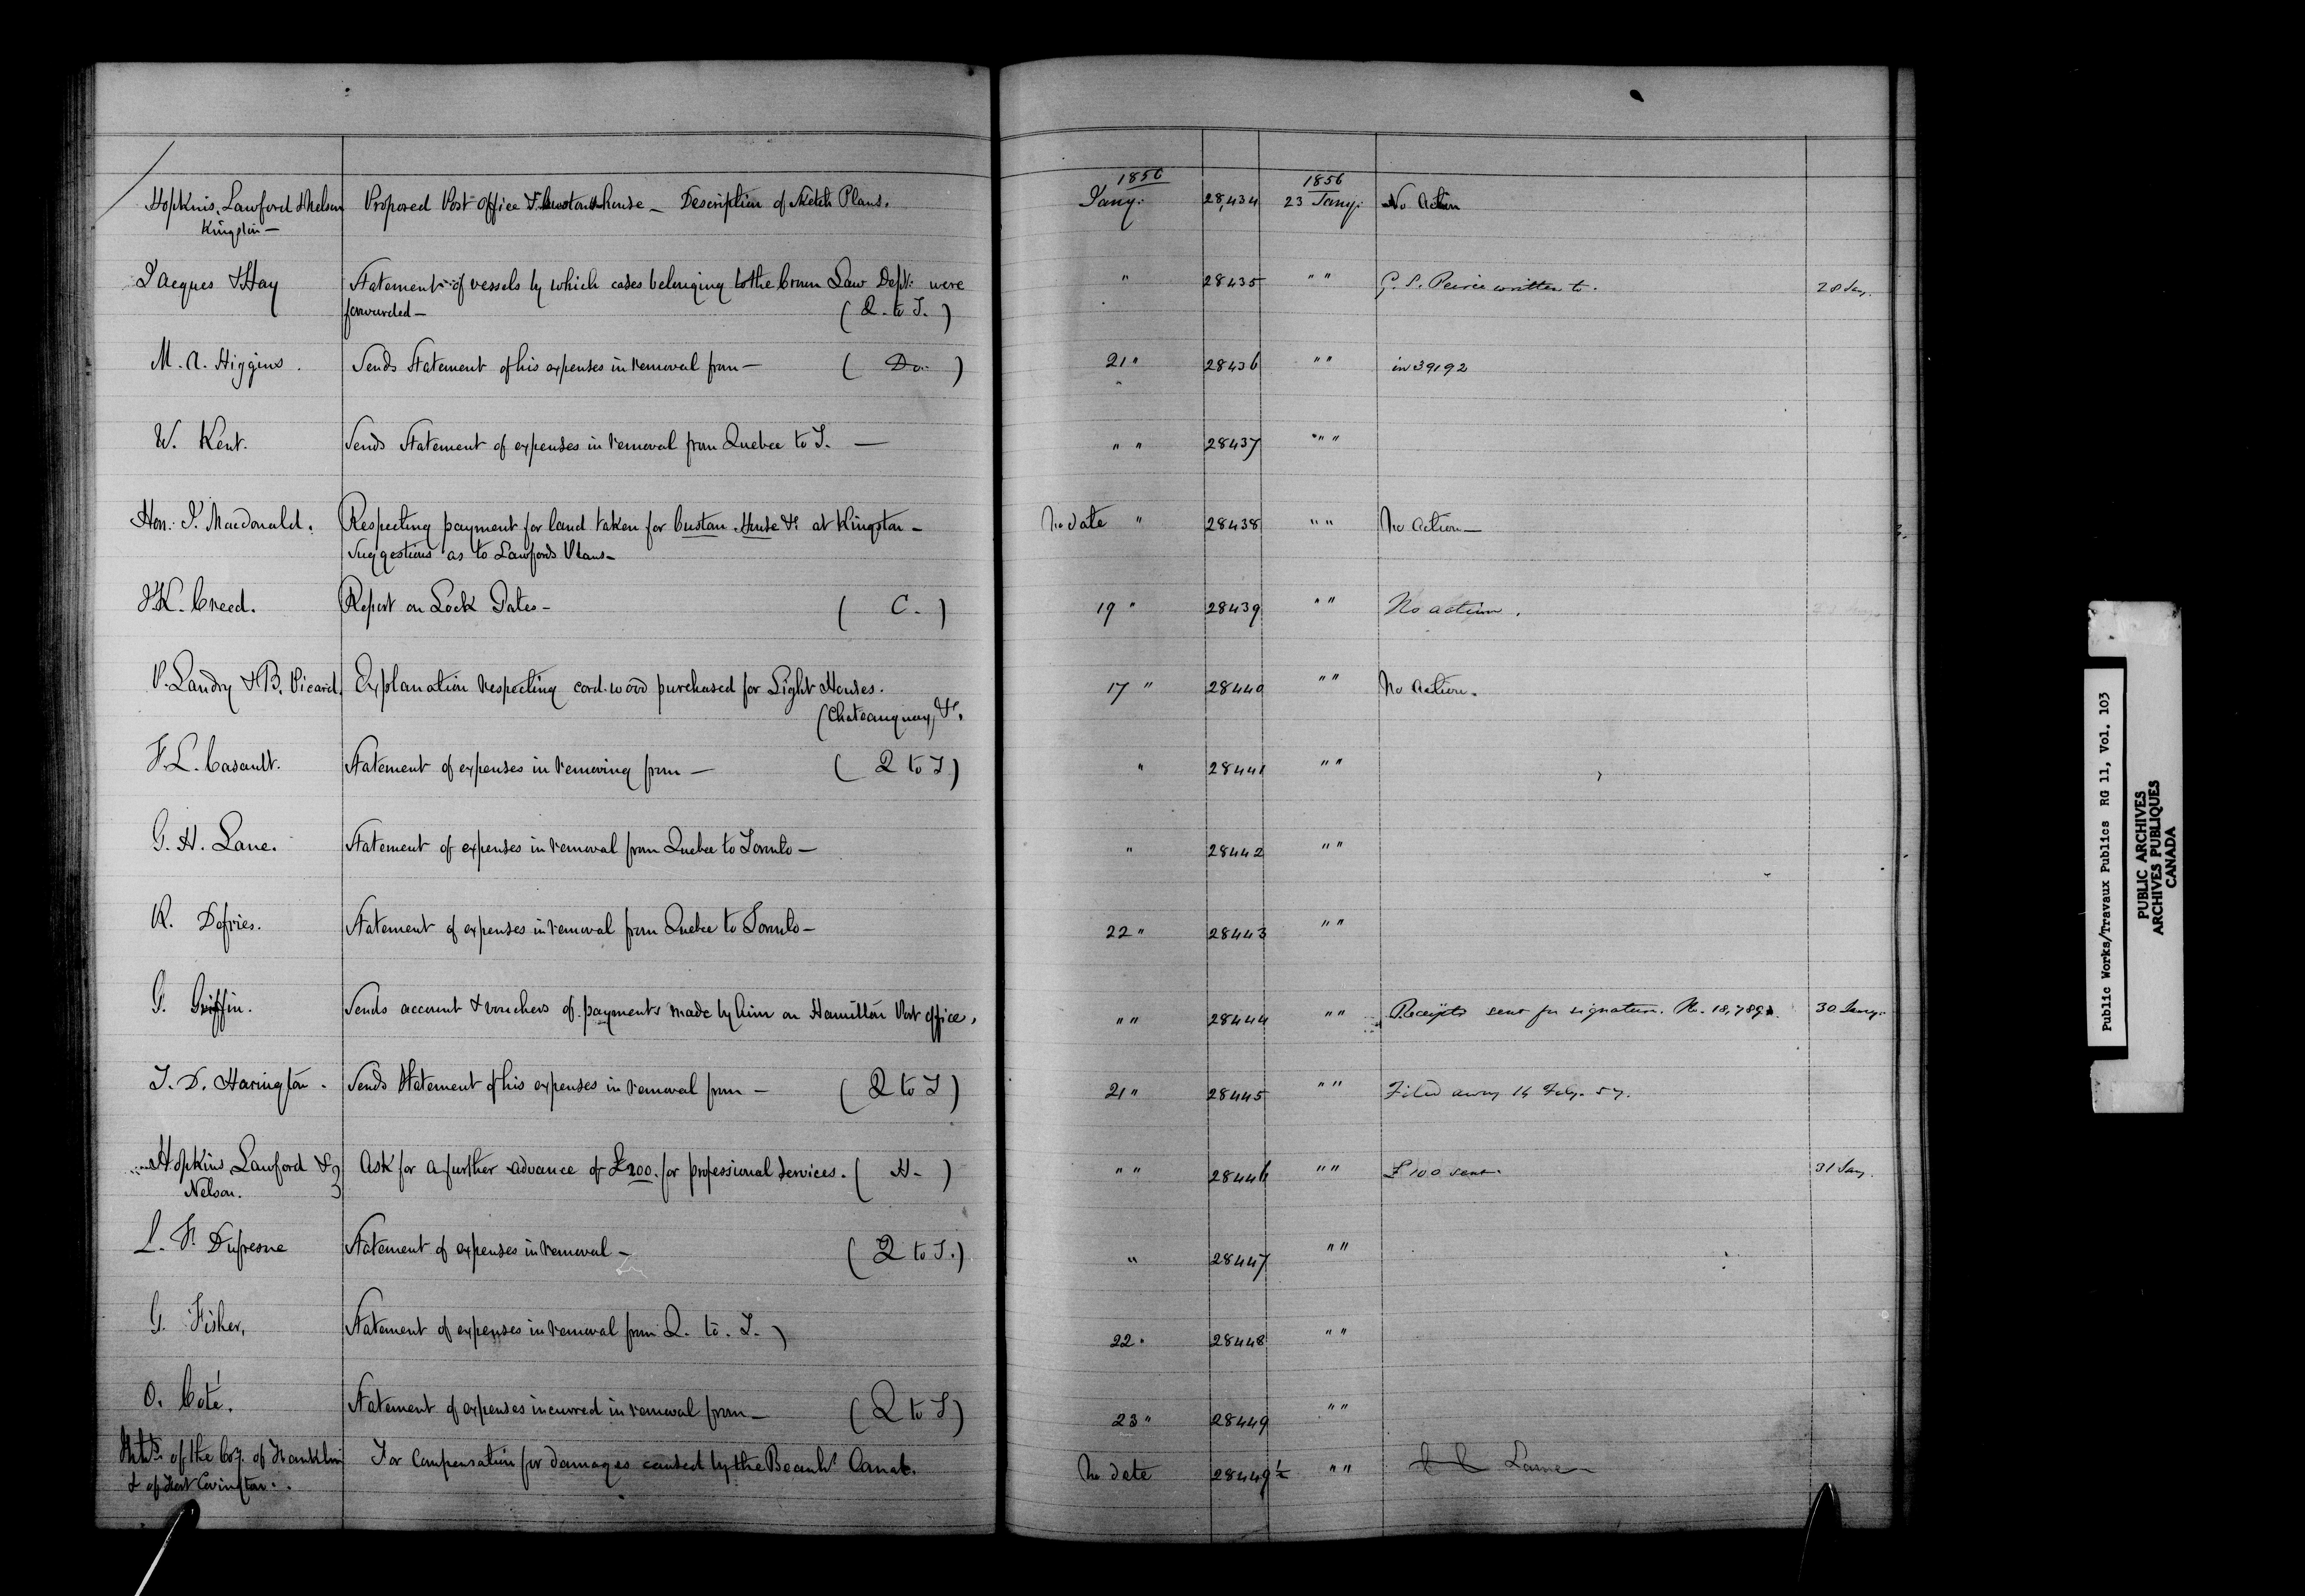 1856 1856
Hopkins, Lawford & Nelson Proposed Post Office & Custom house — Description of Sketch Plans. Jany. 28,434 23 Jany. No Action
Kingston —
Jacques & Hay Statement of vessels by which cases belonging to the Crown Law Dept. were " 28435 " " G. S. Peirce written to. 28 Jany.
forwarded — ( Q. to T. )
M. A. Higgins. Sends Statement of his expenses in removal from — ( Do. ) 21 " 28436 " " in 39192
W. Kent. Sends Statement of expenses in removal from Quebec to T. — " " 28437 " "
Hon. J. Macdonald. Respecting payment for land taken for Custom House &c at Kingston — No date " 28438 " " No action —
Suggestions as to Lawfords Plans —
Creed. Report on Lock Gates — ( C. ) 19 " 28439 " " No action.
P. Landry & B. Picard. Explanation respecting cord-wood purchased for Light Houses. 17 " 28440 " " No Action.
(Chateauguay, &c.
F. L. Casault. Statement of expenses in removing from — ( Q to T ) " 28441 " "
G. H. Lane. Statement of expenses in removal from Quebec to Toronto — " 28442 " "
R. Defries. Statement of expenses in removal from Quebec to Toronto — 22 " 28443 " "
G. Griffin. Sends account & vouchers of payments made by him on Hamilton Post office. " " 28444 " " Receipts sent for signature. No. 18,789 30 Jany.
T. D. Harington. Sends Statement of his expenses in removal from — ( Q to T ) 21 " 28445 " " Filed away 14 Feby. 57.
Hopkins Lawford & Ask for a further advance of £200. for professional services. ( H- ) " " 28446 " " £100 sent. 31 Jany.
Nelson.
L. F. Dufresne Statement of expenses in removal — ( Q to T. ) " 28447 " "
G. Fisher, Statement of expenses in removal from Q. to. T. ) 22 " 28448 " "
O. Coté. Statement of expenses incurred in removal from — ( Q to T ) 23 " 28449 " "
of the Coy. of Franklin For Compensation for damages caused by the Beauhs. Canal. No date 28449½ " "
& of Fort Covington.
Public Works/Travaux Publics RG 11, Vol. 103
PUBLIC ARCHIVES
ARCHIVES PUBLIQUES
CANADA